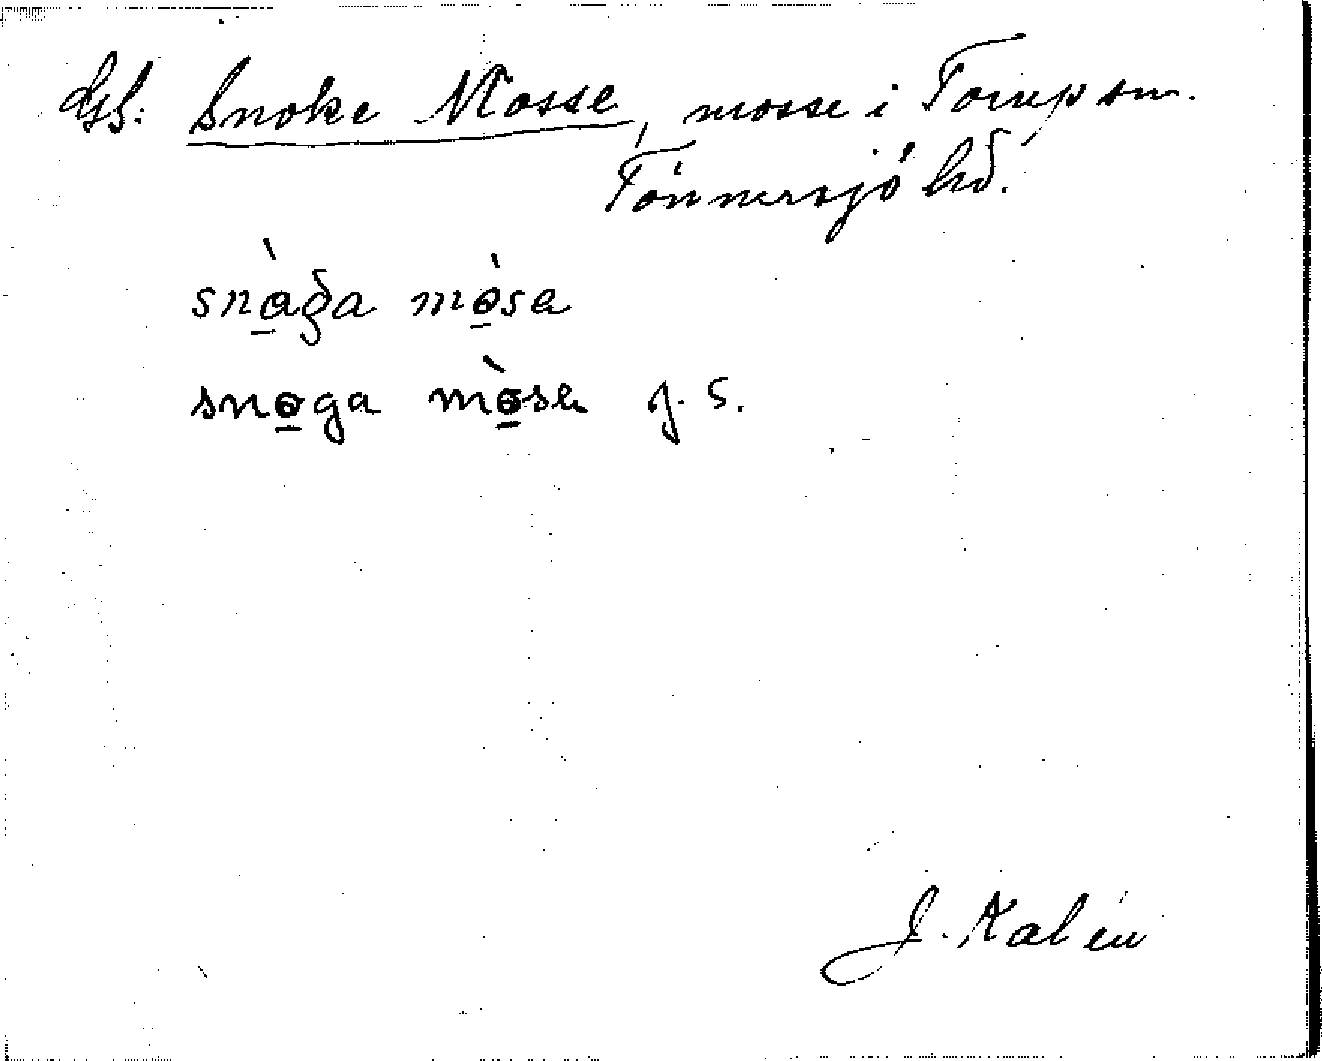 Gsb: Snoke Mosse, mosse i Torup sn.
Tönnersjö hd.
snò̱ga mò̱sa
sno̱ga mò̱sa g. s.
J. Kalén